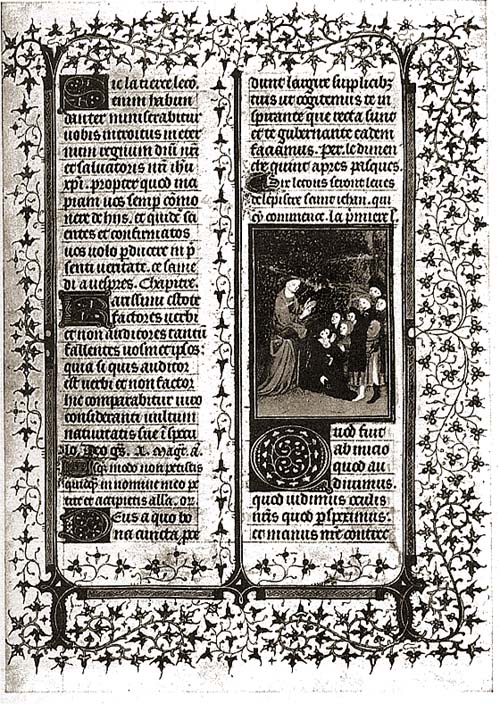 Sic la tierce leco
enim habun
danter ministrabitur
vobis introitus in eter
num regnum dni nri
et salvatoris nri ihu
xpi. propter quod inci
piam vos semp cōmo
nere de hiis. et quidē sci
entes et confirmatos
vos volo pducere in p
senti veritate. ce same
di a vespres. Chapitre.
Karissimi estote
factores verbi
et non auditores tantū
fallentes vosmetipsos:
quia si quis auditor
est verbi et non factor
hic comparabitur viro
consideranti vultum
nativitatis sue ī specu
lo. Deo gr̄s. Magr. a.
Usqz modo non petistis
in nomine meo pe
tite et accipietis alla. or.
Deus a quo bo
na cuncta pro
dunt largire supplicibz
tuis ut cogitemus te in
spirante que recta sunt
et te gubernante eadem
faciamus. Per. le dimen
che quint apres pasques.
Six lecons seront leues
de lepistre saint iehan. qui
cy commence. la pmiere l.
Quod fuit
ab inicio
quod au
divimus.
quod vidimus oculis
nr̄is quod pspeximus.
et manus nr̄e contrec